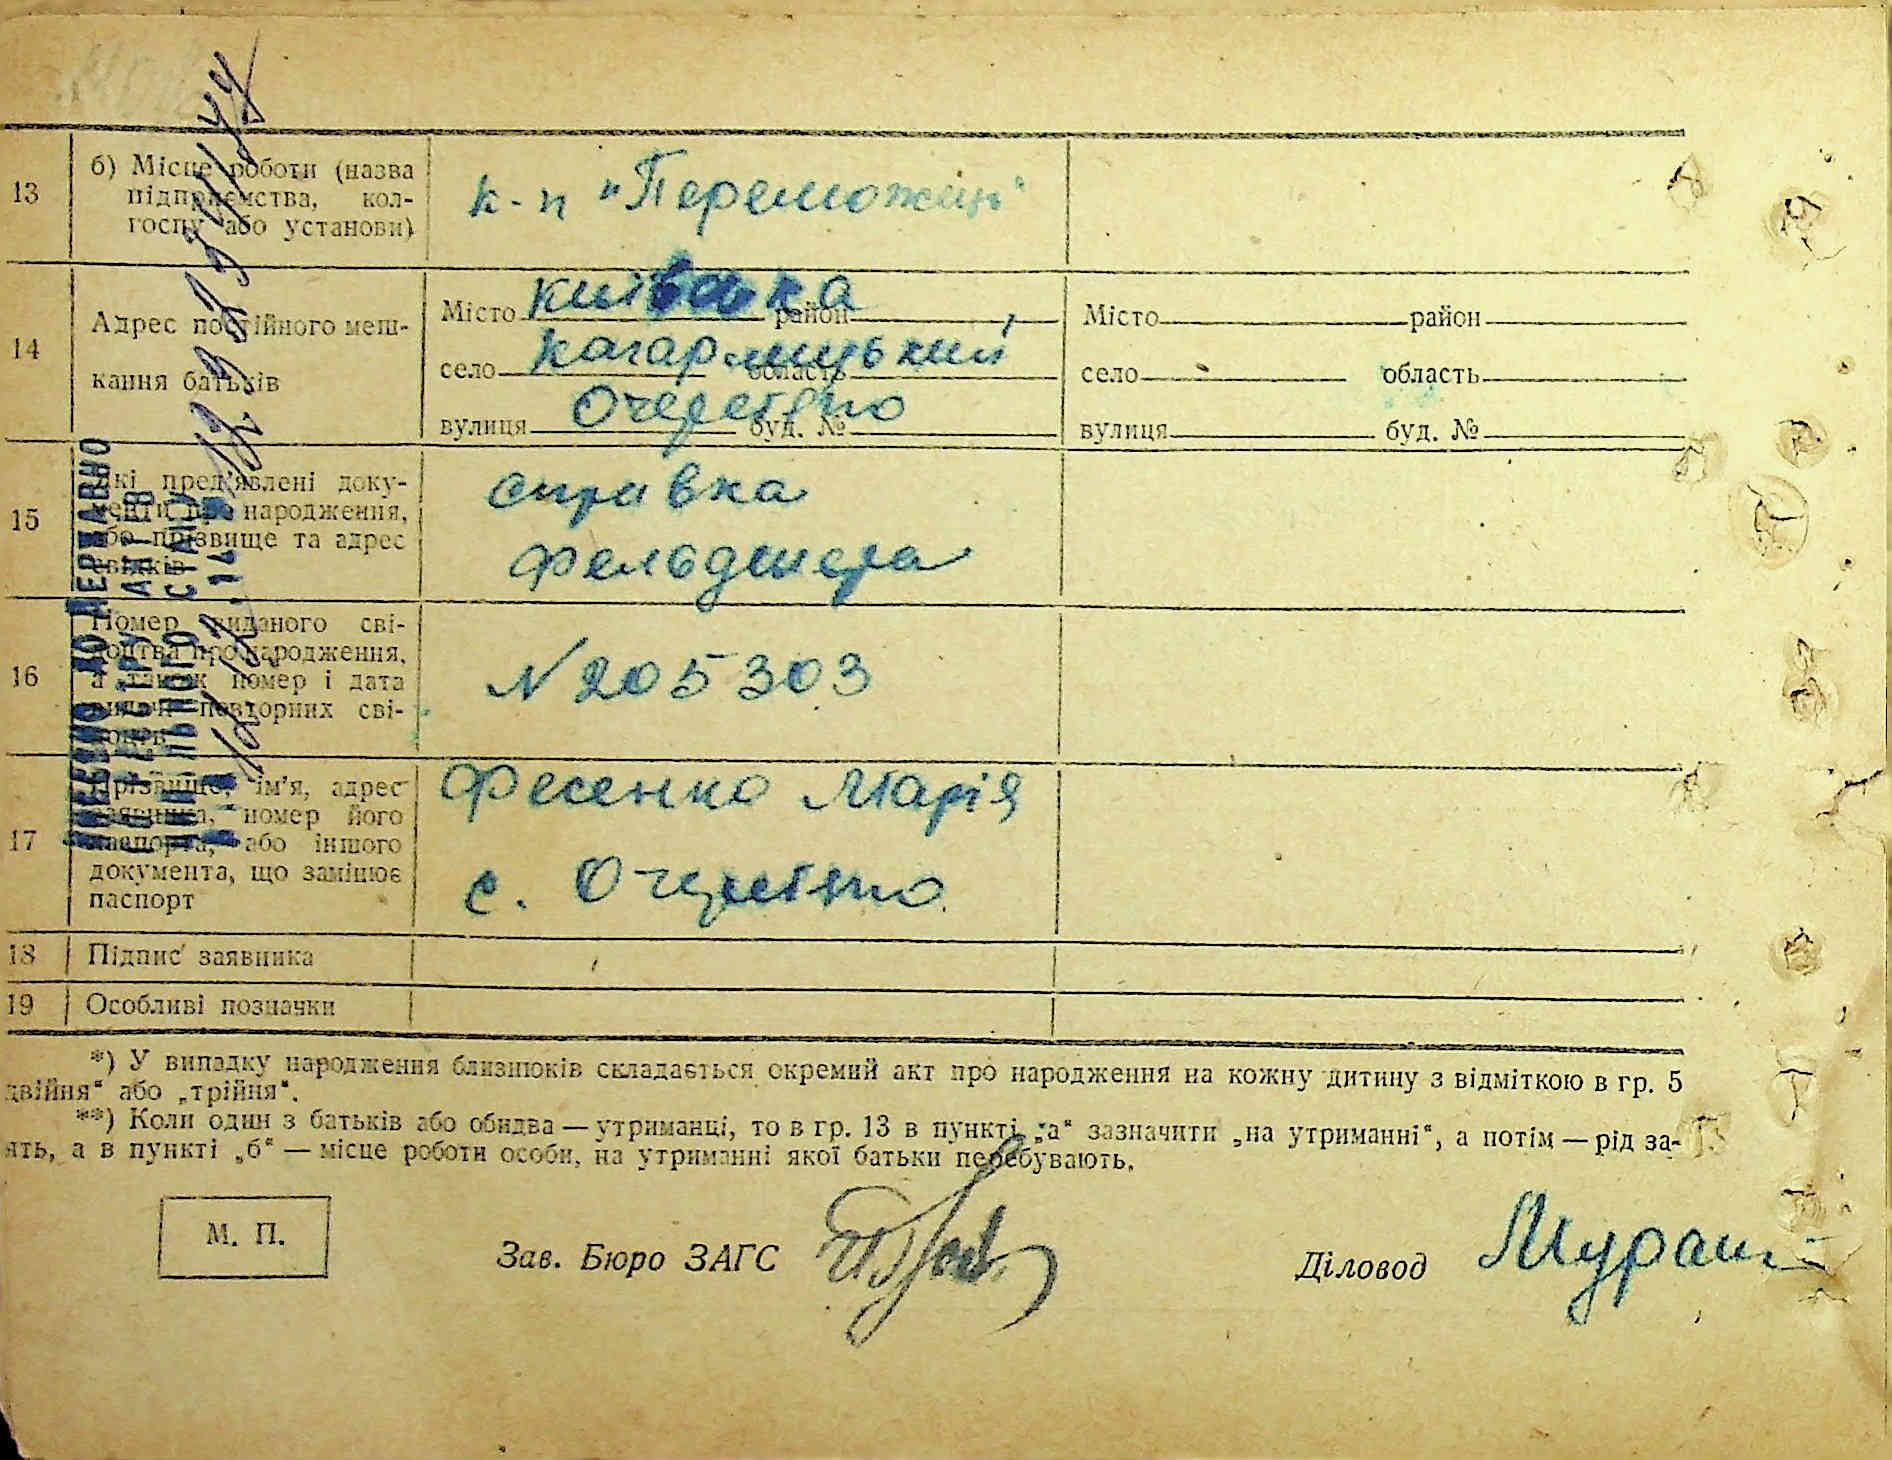 13
б) Місце роботи (назва
підприємства, кол-
госпу або установи)
к-п "Переможець"
14
Адрес постійного меш-
кання батьків
Місто Київська район
село Кагарлицький область
вулиця Очеретяно буд. №
Місто район
село область
вулиця буд. №
15
Які пред'явлені доку-
менти про народження,
або прізвище та адрес
свідків
справка
фельдшера
16
Номер виданого сві-
доцтва про народження,
а також номер і дата
видачі повторних сві-
доцтв
№ 205303
17
Прізвище, ім'я, адрес
заявника, номер його
паспорта, або іншого
документа, що замінює
паспорт
Фесенко Марія
с. Очеретяно.
18
Підпис заявника
19
Особливі позначки
*) У випадку народження близнюків складається окремий акт про народження на кожну дитину з відміткою в гр. 5
двійня“ або „трійня“.
**) Коли один з батьків або обидва — утриманці, то в гр. 13 в пункті „а“ зазначити „на утриманні“, а потім — рід за-
ять, а в пункті „б“ — місце роботи особи, на утриманні якої батьки перебувають.
М. П.
Зав. Бюро ЗАГС
Діловод
ВНЕСЕНО ДО ДЕРЖАВНО